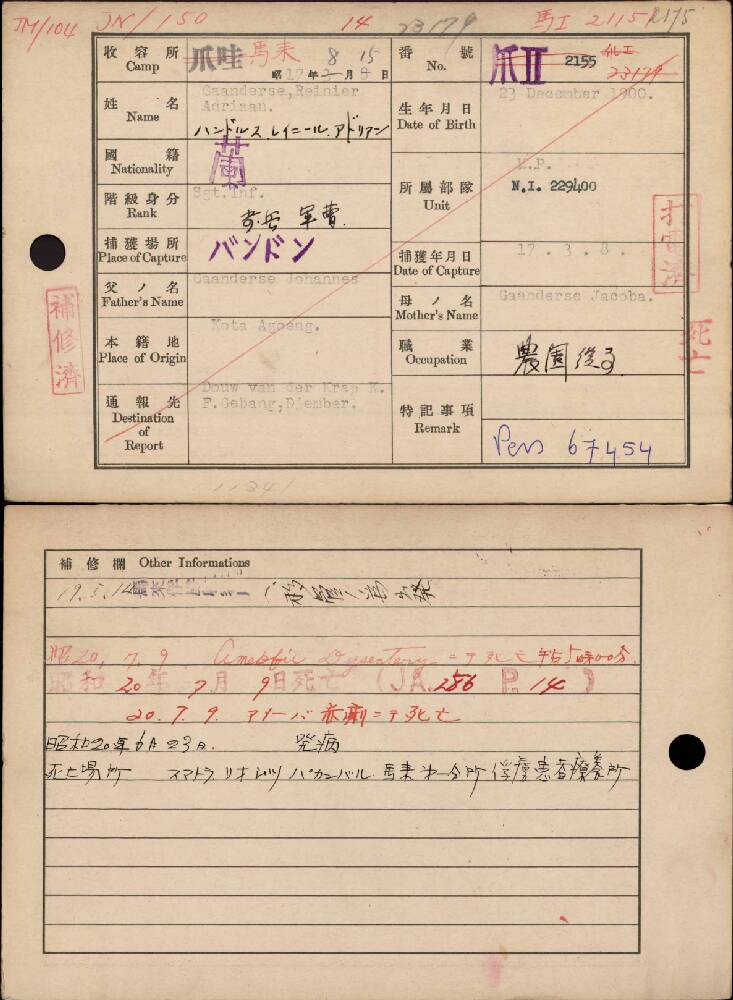 JM/104 JN/150 14 23179 馬I 2115
收容所 Camp 爪哇 馬来 昭17年 8月 15日
番號 No. 爪II 2155 23179
姓名 Name Gaanderse,Reinier Adriaan.
ハンドルス、レイニール、アドリアン
生年月日 Date of Birth 23 December 1900.
國籍 Nationality 蘭
階級身分 Rank Sgt. Inf.
所屬部隊 Unit K.P.
N.I. 229400
捕獲場所 Place of Capture バンドン
捕獲年月日 Date of Capture 17. 3. 8.
父ノ名 Father's Name Gaanderse Johannes
母ノ名 Mother's Name Gaanderse Jacoba.
本籍地 Place of Origin Kota Agoeng.
職業 Occupation 農園
通報先 Destination of Report Douw van der Krap K.
F.Gebang,Djember.
特記事項 Remark
Pers 67454
補修濟
打電濟
死亡
11341
補修欄 Other Informations
19.5.14
昭20. 7. 9 Amebic Dysentery ニテ死亡 午后5時00分
昭和20年7月9日死亡 (JA.286 P.14)
20. 7. 9. アメーバ赤痢ニテ死亡
昭和20年6月23日 発病
死亡場所 スマトラ リオ パカンバル 馬来第一分所俘虜患者療養所